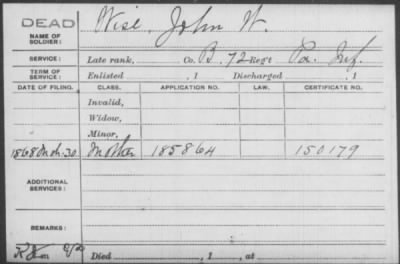 DEAD
NAME OF SOLDIER: Wise, John W.
SERVICE: Late rank, Co. B, 72 Reg't Pa. Inf.
TERM OF SERVICE: Enlisted , 1 Discharged , 1
DATE OF FILING. CLASS. APPLICATION NO. LAW. CERTIFICATE NO.
Invalid,
Widow,
Minor,
1868 Mch. 30 Mother 185864 150179
ADDITIONAL SERVICES:
REMARKS:
Died , 1 , at